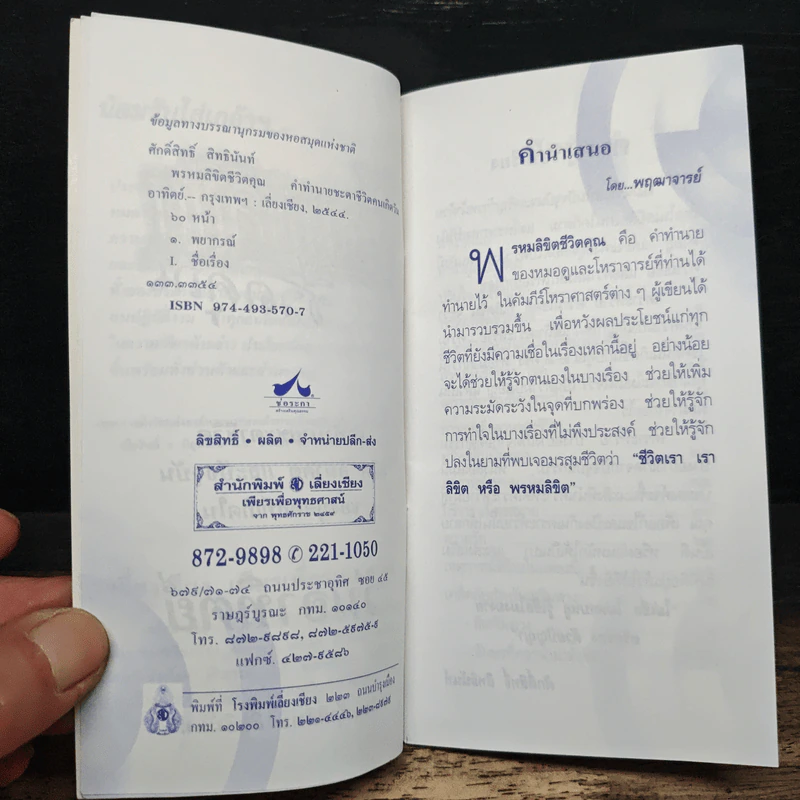 ข้อมูลทางบรรณานุกรมของหอสมุดแห่งชาติ
ศักดิ์สิทธิ์ สิทธินันท์
พรหมลิขิตชีวิตคุณ คำทำนายชะตาชีวิตคนเกิดวัน
อาทิตย์.-- กรุงเทพฯ : เลี่ยงเชียง, ๒๕๔๔.
๖๐ หน้า
๑. พยากรณ์
I. ชื่อเรื่อง
๑๓๓.๓๓๕๔
ISBN 974-493-570-7
ช่อระกา
ลิขสิทธิ์ • ผลิต • จำหน่ายปลีก-ส่ง
สำนักพิมพ์ เลี่ยงเชียง
เพียรเพื่อพุทธศาสน์
จาก พุทธศักราช ๒๔๕๙
872-9898 ✆ 221-1050
๖๗๙/๗๑-๗๔ ถนนประชาอุทิศ ซอย ๔๕
ราษฎร์บูรณะ กทม. ๑๐๑๔๐
โทร. ๘๗๒-๙๘๙๘, ๘๗๒-๕๙๗๕-๙
แฟกซ์. ๔๒๗-๙๕๘๖
พิมพ์ที่ โรงพิมพ์เลี่ยงเชียง ๒๒๓ ถนนบำรุงเมือง
กทม. ๑๐๒๐๐ โทร. ๒๒๑-๔๔๔๖, ๒๒๓-๘๙๗๙
คำนำเสนอ
โดย...พฤฒาจารย์
พรหมลิขิตชีวิตคุณ คือ คำทำนาย
ของหมอดูและโหราจารย์ที่ท่านได้
ทำนายไว้ ในคัมภีร์โหราศาสตร์ต่าง ๆ ผู้เขียนได้
นำมารวบรวมขึ้น เพื่อหวังผลประโยชน์แก่ทุก
ชีวิตที่ยังมีความเชื่อในเรื่องเหล่านี้อยู่ อย่างน้อย
จะได้ช่วยให้รู้จักตนเองในบางเรื่อง ช่วยให้เพิ่ม
ความระมัดระวังในจุดที่บกพร่อง ช่วยให้รู้จัก
การทำใจในบางเรื่องที่ไม่พึงประสงค์ ช่วยให้รู้จัก
ปลงในยามที่พบเจอมรสุมชีวิตว่า "ชีวิตเรา เรา
ลิขิต หรือ พรหมลิขิต"